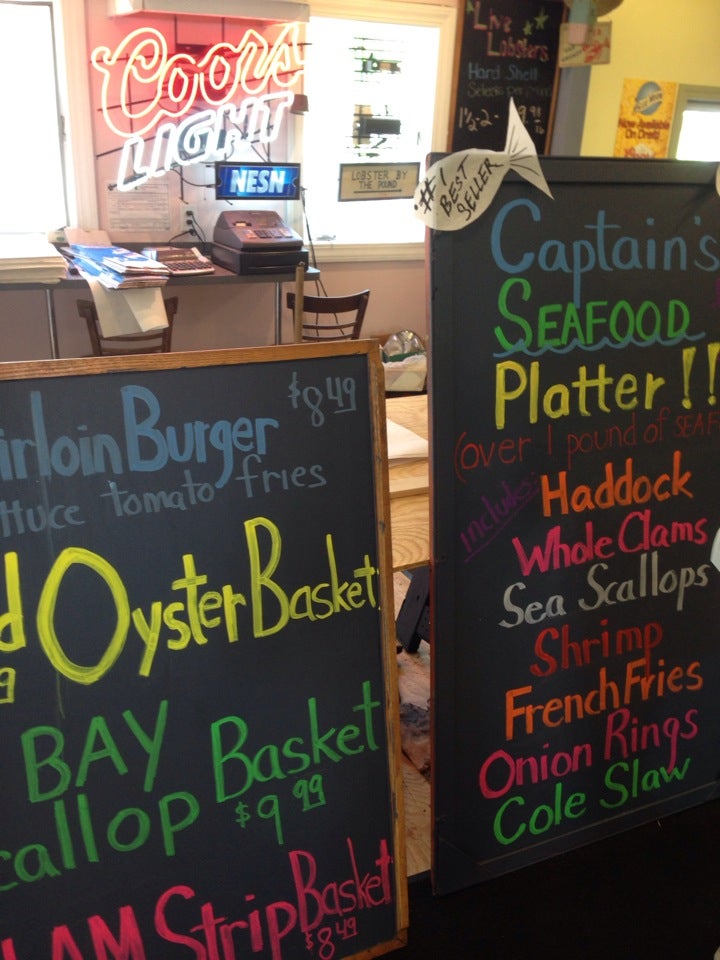 Coors
LIGHT
NESN
LOBSTER BY
THE POUND
Live
Lobsters
Hard Shell
1½-2-
Now Available
On Draft
#1
BEST
SELLER
irloin Burger $8 49
ttuce tomato fries
d Oyster Basket
9
BAY Basket
callop $9 99
LAM Strip Basket
$8 49
Captain's
SEAFOOD
Platter!!
(over 1 pound of SEAF
includes:
Haddock
Whole Clams
Sea Scallops
Shrimp
French Fries
Onion Rings
Cole Slaw